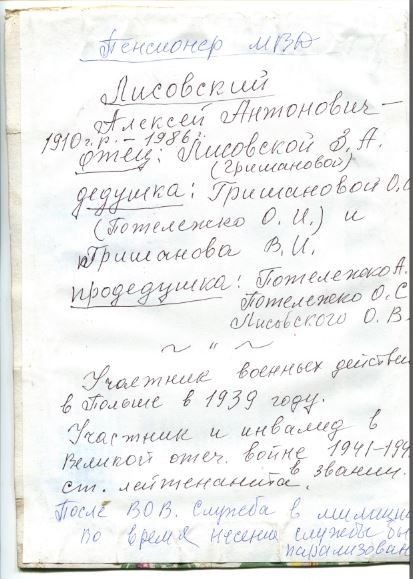 Пенсионер МВД
Лисовский
Алексей Антонович –
1910 г.р. – 1986 г.
отец: Лисовской З.А.
(Гришановой)
дедушка: Гришановой О.
(Потележко О.И.) и
Гришанова В.И.
продедушка: Потележко А.
Потележко О.С
Лисовского О.В.
~ " ~
Участник военных действи
в Польше в 1939 году.
Участник и инвалид в
Великой отеч. войне 1941-19
в звании
ст. лейтенанта.
После ВОВ. Служба в милиции
во время несения службы бы
парализован